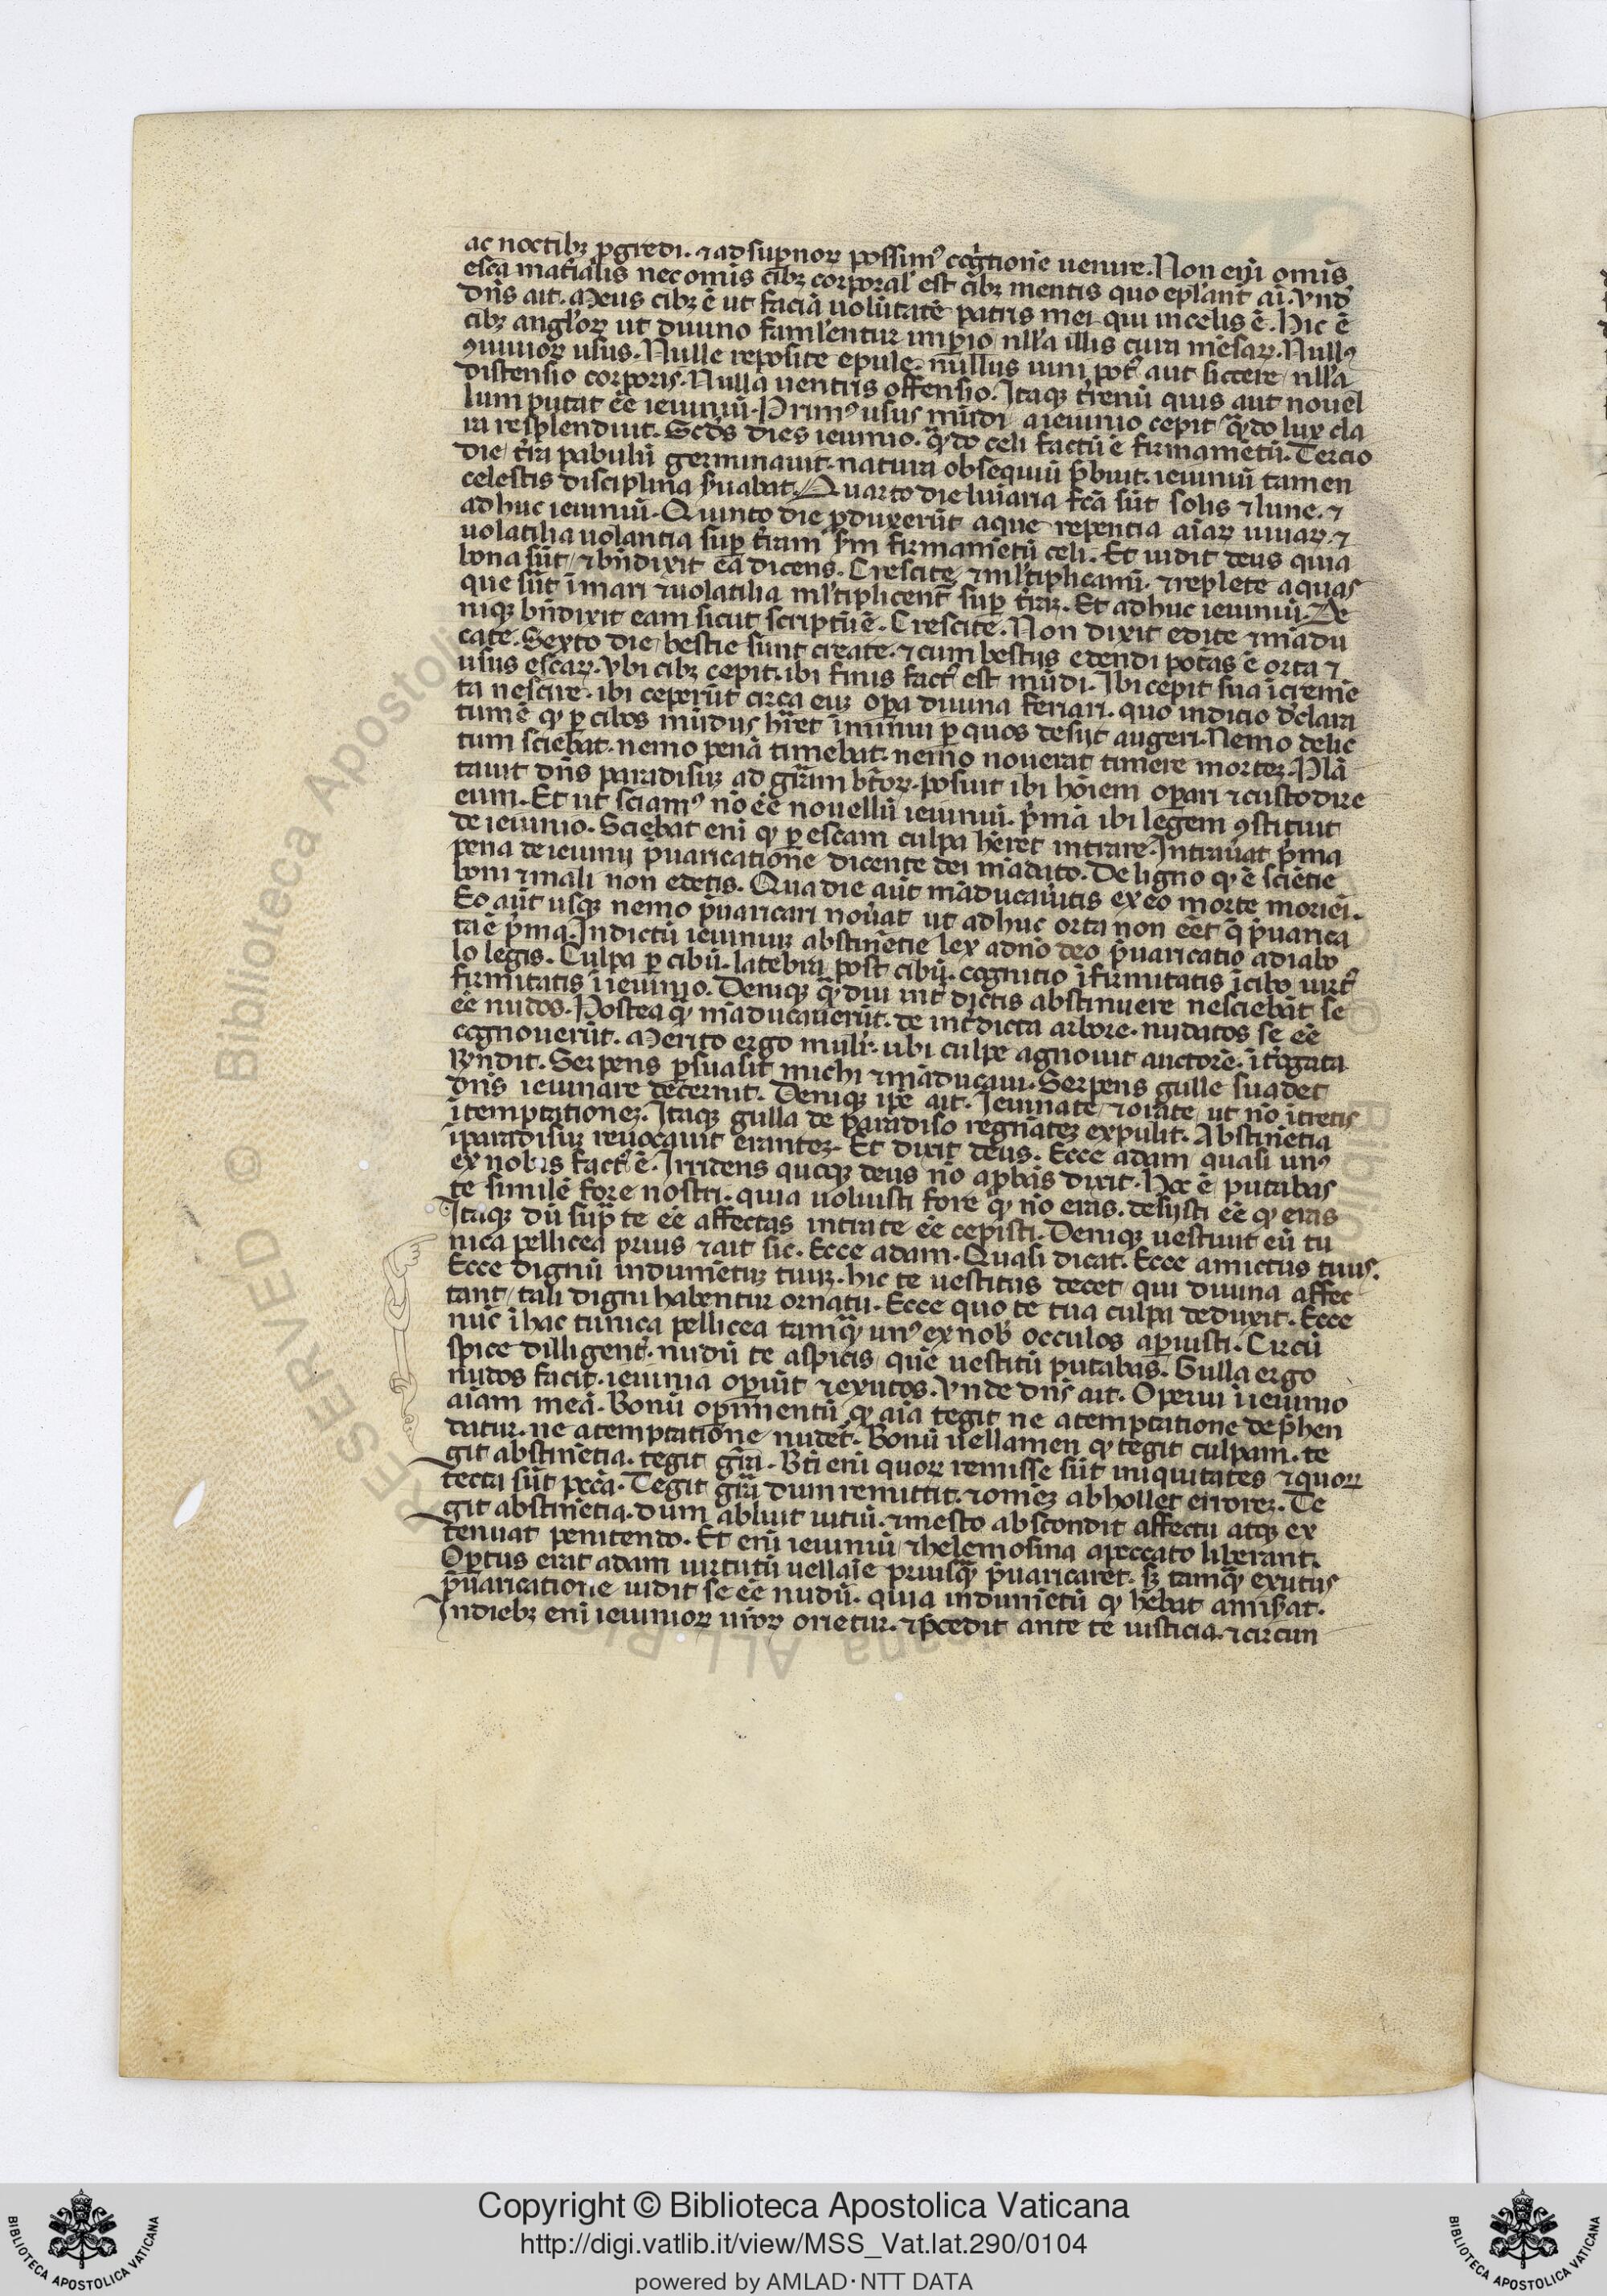 ac noctibꝫ ꝓgredi. ⁊ ad supernoꝝ possimꝰ cogĩtionẽ uenire. Non eni omis
esca mat̃ialis nec omis cibꝫ corporal' est cibꝫ mentis quo epl'ant̃ ai. vnd'
dñs ait. Meus cibꝫ ẽ ut faciã uolũtatẽ patris mei qui in celis ẽ. Hic ẽ
cibꝫ angl'oꝝ ut diuino faml'entur imꝑio. nll'a illis cura mẽsaꝝ. Nullꝰ
ꝯuiuioꝝ usus. Nulle reposite epule. nullus uini potꝰ aut siccere. nll'a
distensio corporis. Nulla uentris offensio. Itaqꝫ t̃renũ quis aut nouel
lum putat ẽe ieiuniũ. Primꝰ usus mũdi a ieiunio cepit. qñdo lux cla
ra resplenduit. Scd's dies ieiunio. qñdo celi factũ ẽ firmamẽtũ. Tercio
die t̃ra pabulũ germinauit. natura obsequiũ p̃buit. ieiuniũ tamen
celestis disciplina s̃uabat. Quarto die luiaria fc̃a sũt solis ⁊ lune. ⁊
ad huc ieiuniũ. Quinto die ꝓduxerũt aque repentia aiaꝝ uiuaꝝ. ⁊
uolatilia uolantia suꝑ t̃ram s̃m firmamẽtũ celi. Et uidit deus quia
bona sũt. ⁊ bñdixit ea dicens. Crescite ⁊ ml'tiplicamĩ. ⁊ replete aquas
que sũt ĩ mari ⁊ uolatilia ml'tiplicent̃ suꝑ t̃raꝫ. Et ad huc ieiuniũ. De
niqꝫ bñdixit eam sicut scriptũ ẽ. Crescite. Non dixit edite ⁊ mãdu
cate. Sexto die bestie sunt create. ⁊ cum bestijs edendi potãs ẽ orta ⁊
usus escaꝝ. vbi cibꝫ cepit. ibi finis factꝰ est mũdi. Ibi cepit sua ĩcremẽ
ta nescire. ibi ceperũt circa euꝫ oꝑa diuina feriari. quo indicio d'clara
tum ẽ qꝫ ꝑ cibos mũdus h̃ret ĩminui ꝑ quos desijt augeri. Nemo delic
tum sciebat. nemo penã timebat. nemo nouerat timere morteꝫ. Plã
tauit dñs paradisuꝫ ad gr̃am bt̃oꝝ. posuit ibi hõiem oꝑari ⁊ custodire
eum. Et ut sciamꝰ nõ ẽe nouellũ ieiuniũ. p̃mã ibi legem ꝯstituit
de ieiunio. Sciebat eni qꝫ ꝑ escam culpa h̃eret intrare. Intrau̾at p̃ma
pena de ieiunij p̃uaricatione dicente dei mãdato. De ligno qꝫ ẽ sciẽtie
boni ⁊ mali non edetis. Qua die aũt mãducau̾itis ex eo morte moriei.
Eo aũt usqꝫ nemo p̃uaricari nou̾at ut ad huc orta non eẽt q̃ p̃uarica
ta ẽ p̃ma. Indictũ ieiuniuꝫ abstinẽtie lex adnõ deo p̃uaricatio a diabo
lo legis. Culpa ꝑ cibũ. latebra post cibũ. cognitio ĩfirmitatis ĩ cibo uirtꝰ
firmitatis ĩ ieiunio. Deniqꝫ qñdiu int̃dictis abstinuere nesciebãt se
ẽe nudos. Postea qꝫ mãducauerũt. de int̃dicta arbore. nudatos se ẽe
cognouerũt. Merito ergo muli'r. ubi culpe agnouit auctorẽ. ĩt̃rogata
rñdit. Serpens ꝑsuasit michi ⁊ mãducaui. Serpens gulle suadet
dñs ieiunare decernit. Deniqꝫ ip̃e ait. Ieiunate ⁊ orate ut nõ ĩtretis
ĩ temptationeꝫ. Itaqꝫ gulla de paradiso regnãteꝫ expulit. Abstinẽtia
ĩ paradisuꝫ reuocauit eranteꝫ. Et dixit deus. Ecce adam quasi unꝰ
ex nobis factꝰ ẽ. Irridens quoqꝫ deus nõ aꝓbãs dixit. Hoc ẽ putabas
te similẽ fore nostri. quia uoluisti fore qꝫ nõ eras. desijsti ẽe qꝫ eras
Itaqꝫ dũ suꝑ te ẽe affectas infra te ẽe cepisti. Deniqꝫ uestiuit eũ tu
nica pellicea prius ⁊ ait sic. Ecce adam. Quasi dicat. Ecce amictus tuus.
Ecce dignũ indumẽtuꝫ tuuꝫ. hic te uestitus decet qui diuina affec
tant. tali digni habentur ornatu. Ecce quo te tua culpa deduxit. Ecce
nũc ĩ hac tunica pellicea tamqꝫ unꝰ ex nob' occulos aꝑuisti. Circũ
spice dilligent̃. nudũ te aspicis quẽ uestitũ putabas. Gulla ergo
nudos facit. ieiunia oꝑiũt ⁊ exutos. vnde dñs ait. Operui ĩ ieiunio
aiam meã. Bonũ oꝑimentũ qꝫ aiã tegit ne a temptatione dep̃hen
datur. ne a temptatione nudet̃. Bonũ uellamen qꝫ tegit culpam. te
git abstinẽtia. tegit gr̃a. Bt̃i eni quoꝝ remisse sũt iniquitates ⁊ quoꝝ
tecta sũt pcc̃a. Tegit gr̃a dum remittit. ⁊ omeꝫ abhollet erroreꝫ. Te
git abstinẽtia. dum abluit uitiũ. ⁊ mesto abscondit affectu atqꝫ ex
tenuat penitendo. Et eni ieiuniũ ⁊ helemosina a peccato liberant.
Oꝑtus erat adam uirtutũ uellaĩe priusqꝫ p̃uaricaret̃. sꝫ tamqꝫ exutus
p̃uaricatione uidit se ẽe nudũ. quia indumẽtũ qꝫ h̃ebat amis̾at.
In diebꝫ eni ieiunioꝝ orietur. ⁊ p̃cedit ante te iusticia. ⁊ circun
Copyright © Biblioteca Apostolica Vaticana
http://digi.vatlib.it/view/MSS_Vat.lat.290/0104
powered by AMLAD·NTT DATA
BIBLIOTECA APOSTOLICA VATICANA
BIBLIOTECA APOSTOLICA VATICANA